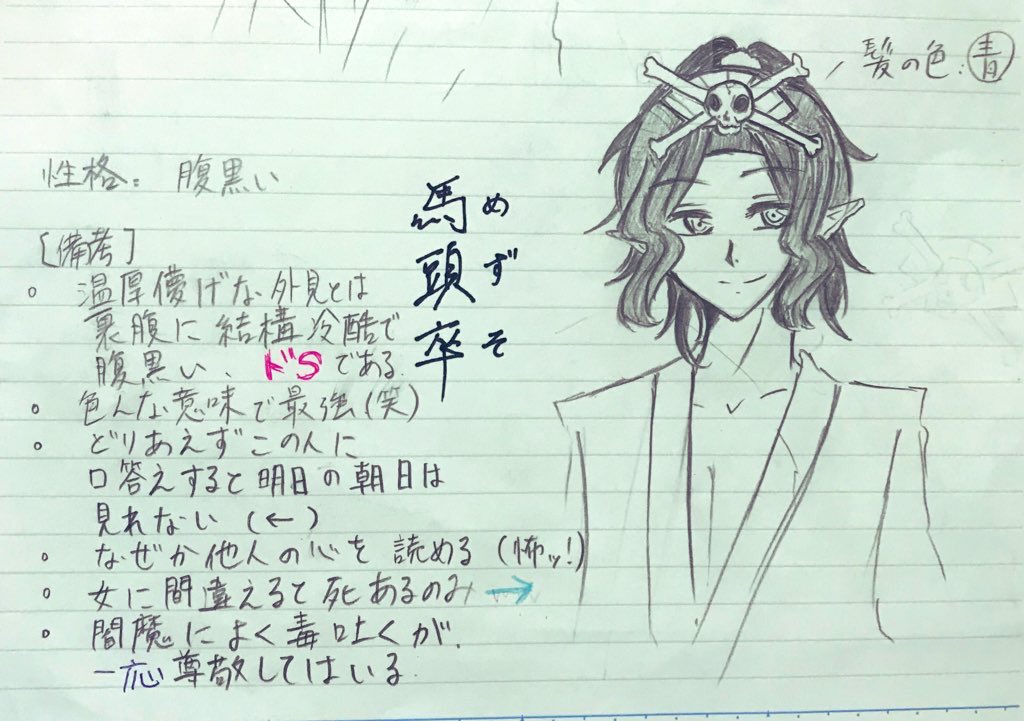 髪の色:青
性格: 腹黒い
馬頭卒
めずそ
[備考]
。温厚儚げな外見とは
裏腹に結構冷酷で
腹黒い、ドSである.
。色んな意味で最強(笑)
。どりあえずこの人に
口答えすると明日の朝日は
見れない (←)
。なぜか他人の心を読める(怖ッ!)
。女に間違えると死あるのみ →
。閻魔によく毒吐くが.
一応尊敬してはいる